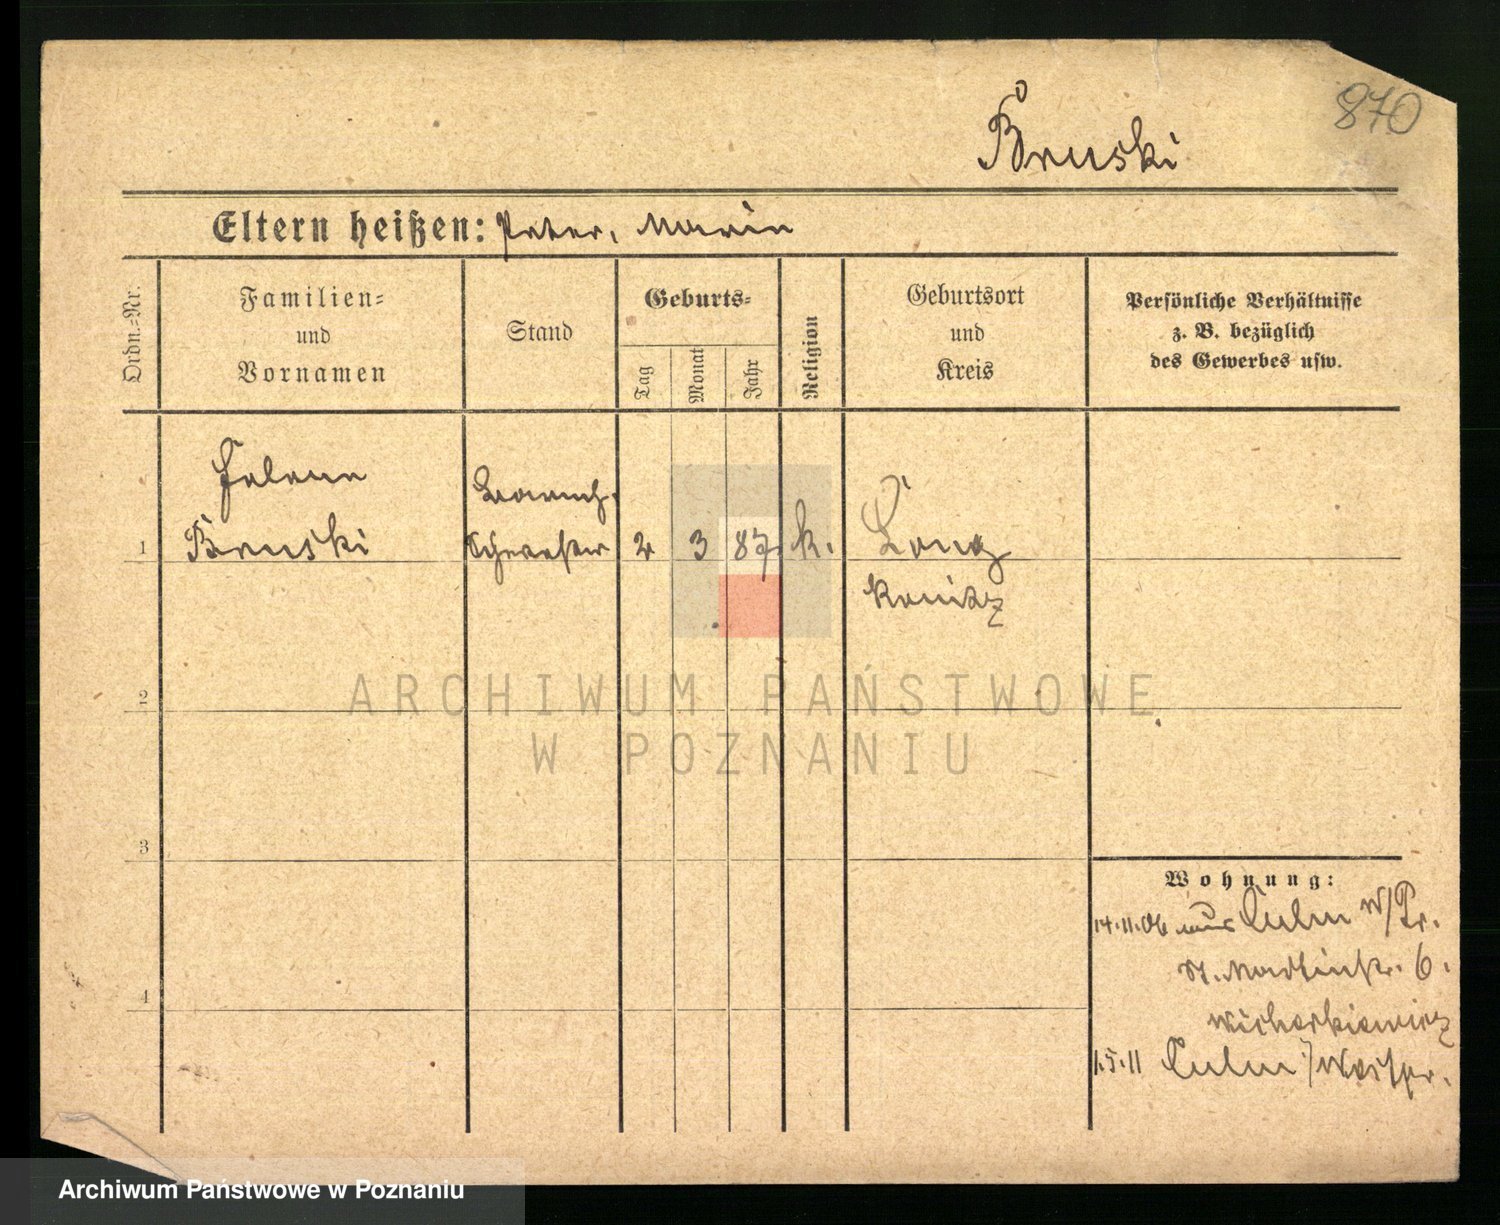 870
Bruski
Eltern heißen: Peter, Marie
Ordn.=Nr.
Familien=
und
Vornamen
Stand
Geburts=
Tag
Monat
Jahr
Religion
Geburtsort
und
Kreis
Persönliche Verhältnisse
z. B. bezüglich
des Gewerbes usw.
1
Helene
Bruski
Barmh.
Schwester
2
3
87
k.
Long
Konitz
2
3
4
Wohnung:
14.11.06 aus Culm W/Pr.
St. Martinstr. 6.
Wicherkiewicz
1.5.11 Culm /Westpr.
ARCHIWUM PAŃSTWOWE
W POZNANIU
Archiwum Państwowe w Poznaniu